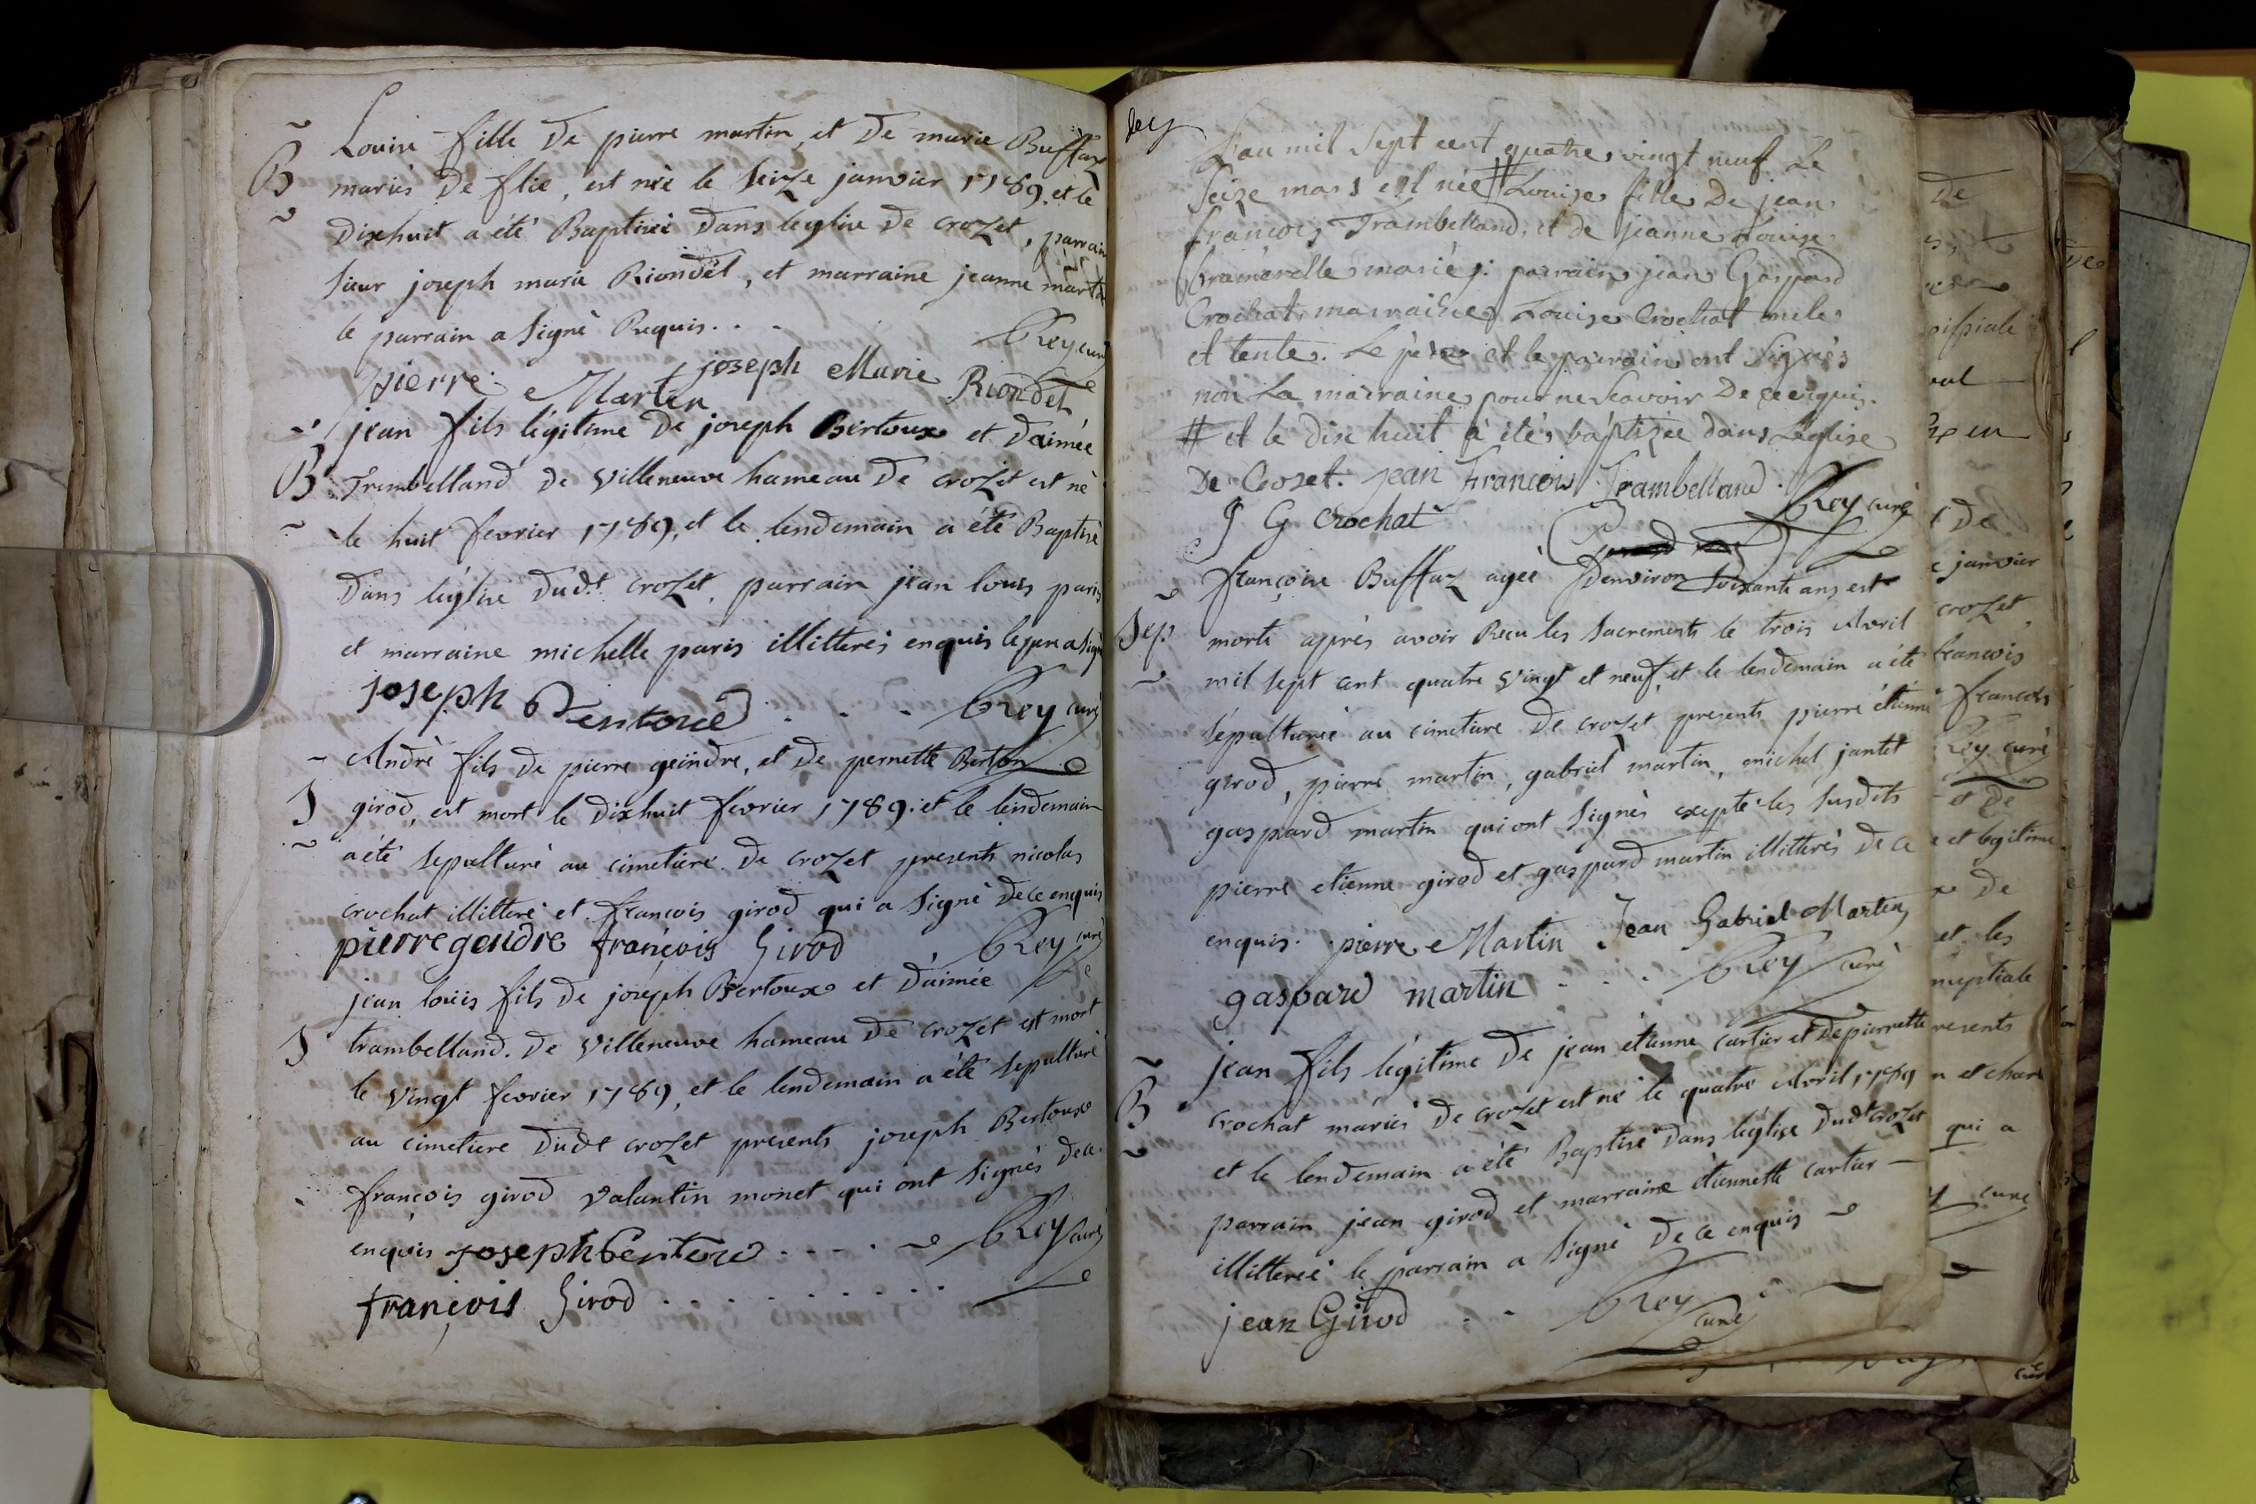 Louise fille De pierre martin, et De marie Buffaz
B mariés De flie, est née le seize janvier 1789. et le
Dixhuit a été Baptisée Dans léglise De crozet, parrain
sieur joseph marie Riondél, et marraine jeanne martin
le parrain a signé Requis. . .
Rey curé
pierre Martin joseph Marie Riondel
jean fils légitime De joseph Bertoux et Daimée
B Trembelland De Villeneuve hameau De crozet est né
le huit fevrier 1789, et le lendemain a été Baptisé
Dans léglise Dudt crozet, parrain jean louis paris
et marraine michelle paris illitterés enquis le pere a signé
joseph Bentoue . . . Rey curé
André fils De pierre geindre, et De pernette Berton
S girod, est mort le Dixhuit fevrier 1789. et le lendemain
a été sepulturé au cimetiere De crozet presents nicolas
crochat illitteré et françois girod qui a signé De ce enquis
pierre gendre françois Girod Rey curé
jean louis fils De joseph Bertoux et D'aimée
S trambelland. De Villeneuve hameau De crozet est mort
le Vingt fevrier 1789, et le lendemain a été sepulturé
au cimetiere Dudt crozet presents joseph Bertoux
françois girod Valantin monet qui ont signés De ce
enquis joseph Bentoue . . . . Rey curé
françois Girod . . . . . . . . . .
L'an mil sept cent quatre vingt neuf Le
seize mars est née # Louise fille De jean
françois Trambelland, et de jeanne Louise
mariés: parrain jean Gaspard
Crochat, marraine Louise Crochat
et tente. Le père et le parrain ont signés
non La marraine pour ne scavoir De ce enquis.
# et le dix huit a été baptizée dans L'église
De Crozet. jean François Trambelland. Rey curé
J G Crochat
françoise Buffaz agée Denviron soixante ans est
Sep morte apprès avoir Recu les sacrements le trois Avril
mil sept cent quatre vingt et neuf, et le lendemain a été
sépulturée au cimetiere De crozet presents pierre étienne
girod, pierre martin, gabriel martin, michel jantet
gaspard martin qui ont signés exepté les susdits
pierre etienne girod et gaspard martin illitterés De ce
enquis. pierre Martin Jean Gabriel Martin
gaspard martin . . . Rey curé
jean fils légitime De jean étienne cartier et De pierrette
B crochat mariés De crozet est né le quatre Avril 1789
et le lendemain a été Baptisé Dans léglise Dudt crozet
parrain jean girod et marraine étiennette cartier
illitterée le parrain a signé De ce enquis
jean Girod . . Rey curé
De
en
De
janvier
crozet
francois
francois
Rey curé
et De
et legitime
De
et les
nuptiale
presents
et
qui a
curé